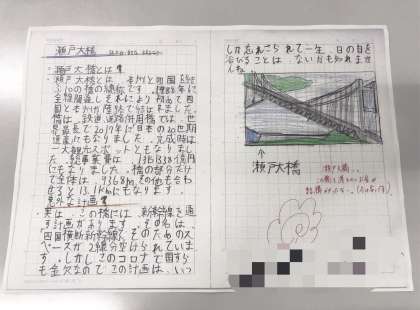 瀬戸大橋
・瀬戸大橋とは
・瀬戸大橋は、本州と四国を結
ぶ10の橋の総称です。1988年に
全線開通しそれにより初めて四
国と本州が陸路で結ばれました。
橋は、鉄道道路併用橋では、世
界最長で2017年に日本の20世期
遺産にもなりました。完成時は
一大観光スポットともなりまし
た。総事業費は、1兆1338億円
にもなりました。橋の部分だけ
で全体は、9368mその他も合わ
せると13.1kmにもなります。
意外な計画
・実は、この橋には、新幹線を通
す計画があります。その名は、
四国横断新幹線。そのためのス
ペースが2線分空けられていま
す。しかしこのコロナで国すら
も金欠なのでこの計画は、いつ
しか忘れさられて一生、日の目を
浴びることは、ないかも知れませ
んね。
瀬戸大橋